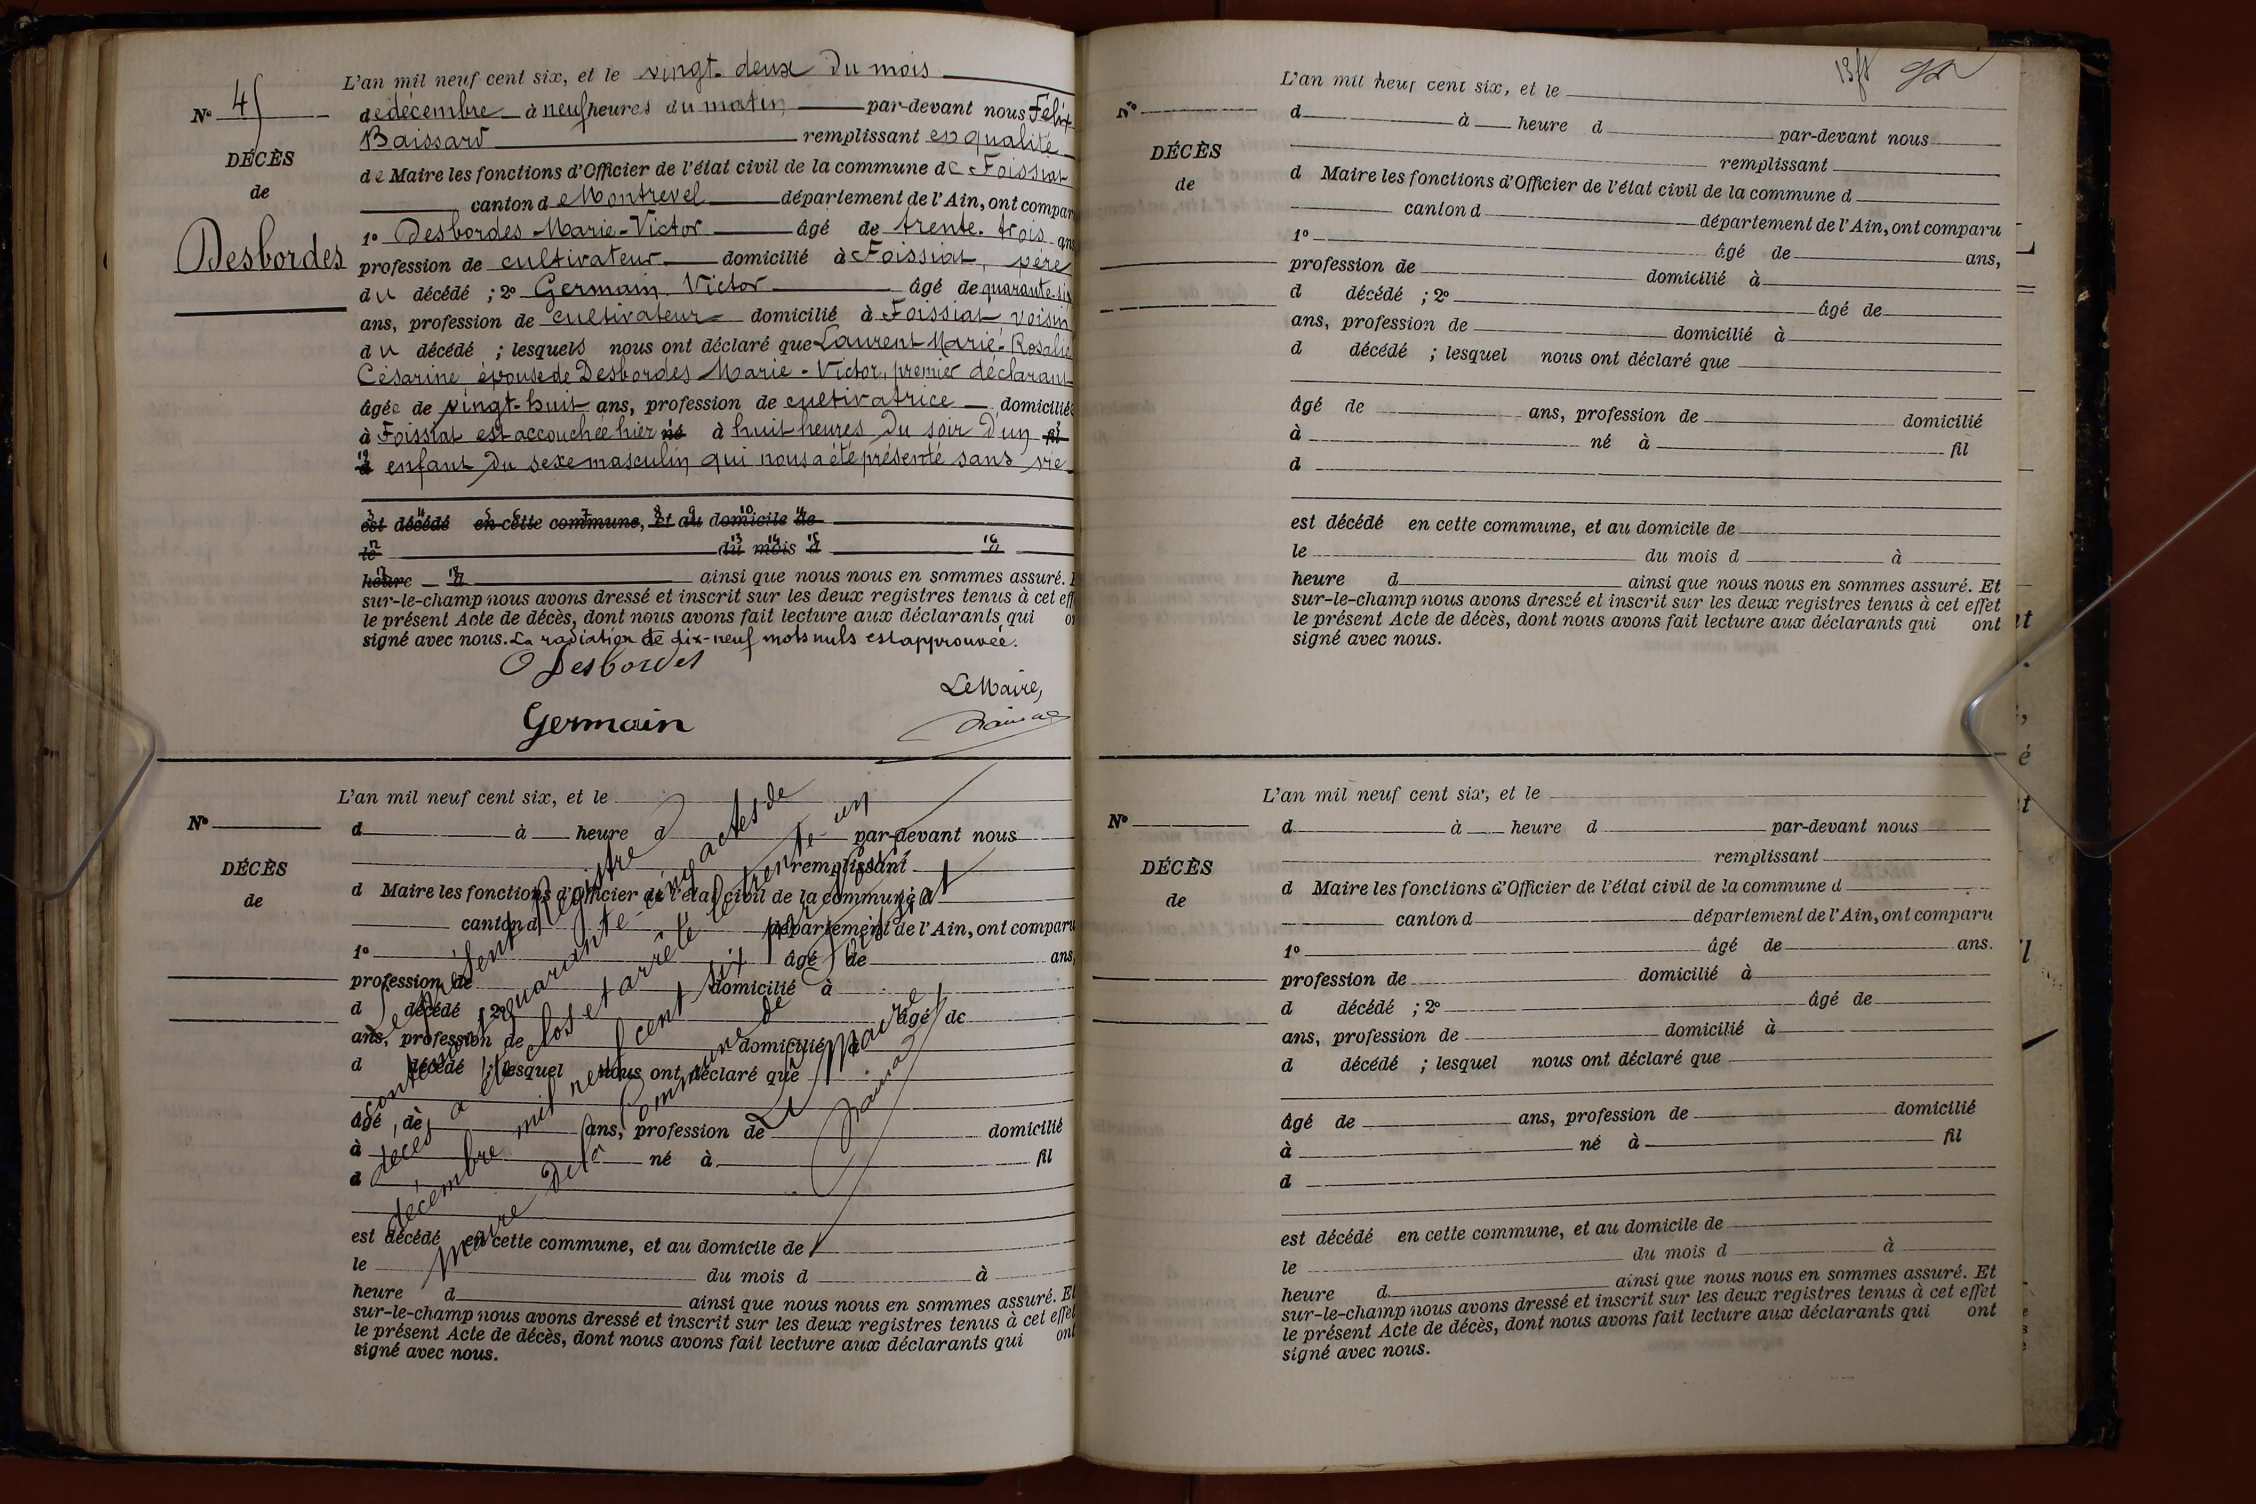 L'an mil neuf cent six, et le vingt-deux du mois
No 45
de décembre à neuf heures du matin par-devant nous Félix
Baissard remplissant en qualité
DÉCÈS
de Maire les fonctions d'Officier de l'état civil de la commune de Foissiat
de
canton de Montrevel département de l'Ain, ont compar
Desbordes
1o Desbordes Marie-Victor âgé de trente-trois ans
profession de cultivateur domicilié à Foissiat, père
du décédé ; 2o Germain Victor âgé de quarante-six
ans, profession de cultivateur domicilié à Foissiat voisin
du décédé ; lesquels nous ont déclaré que Laurent Marie-Rosalie
Césarine épouse de Desbordes Marie-Victor, premier déclarant
âgée de vingt-huit ans, profession de cultivatrice domiciliée
à Foissiat est accouchée hier né à huit heures du soir d'un fil
d enfant du sexe masculin qui nous a été présenté sans vie
est décédé en cette commune, et au domicile de
le du mois d à
heure d ainsi que nous nous en sommes assuré. E
sur-le-champ nous avons dressé et inscrit sur les deux registres tenus à cet eff
le présent Acte de décès, dont nous avons fait lecture aux déclarants qui on
signé avec nous. La radiation de dix-neuf mots nuls est approuvée.
Desbordes
Le Maire,
Germain
L'an mil neuf cent six, et le
No
d à heure d par-devant nous
remplissant
DÉCÈS
d Maire les fonctions d'Officier de l'état civil de la commune d
de
canton d département de l'Ain, ont comparu
1o âgé de ans,
profession de domicilié à
d décédé ; 2o âgé de
ans, profession de domicilié à
d décédé ; lesquel nous ont déclaré que
âgé de ans, profession de domicilié
à né à fil
d
est décédé en cette commune, et au domicile de
le du mois d à
heure d ainsi que nous nous en sommes assuré. Et
sur-le-champ nous avons dressé et inscrit sur les deux registres tenus à cet effet
le présent Acte de décès, dont nous avons fait lecture aux déclarants qui ont
signé avec nous.
Le présent Registre
contenant quarante-cinq actes de
décès a été clos et arrêté le trente-un
décembre mil neuf cent six par nous,
Maire de la Commune de Foissiat
Le Maire
L'an mil neuf cent six, et le
No
d à heure d par-devant nous
remplissant
DÉCÈS
d Maire les fonctions d'Officier de l'état civil de la commune d
de
canton d département de l'Ain, ont comparu
1o âgé de ans,
profession de domicilié à
d décédé ; 2o âgé de
ans, profession de domicilié à
d décédé ; lesquel nous ont déclaré que
âgé de ans, profession de domicilié
à né à fil
d
est décédé en cette commune, et au domicile de
le du mois d à
heure d ainsi que nous nous en sommes assuré. Et
sur-le-champ nous avons dressé et inscrit sur les deux registres tenus à cet effet
le présent Acte de décès, dont nous avons fait lecture aux déclarants qui ont
signé avec nous.
L'an mil neuf cent six, et le
No
d à heure d par-devant nous
remplissant
DÉCÈS
d Maire les fonctions d'Officier de l'état civil de la commune d
de
canton d département de l'Ain, ont comparu
1o âgé de ans.
profession de domicilié à
d décédé ; 2o âgé de
ans, profession de domicilié à
d décédé ; lesquel nous ont déclaré que
âgé de ans, profession de domicilié
à né à fil
d
est décédé en cette commune, et au domicile de
le du mois d à
heure d ainsi que nous nous en sommes assuré. Et
sur-le-champ nous avons dressé et inscrit sur les deux registres tenus à cet effet
le présent Acte de décès, dont nous avons fait lecture aux déclarants qui ont
signé avec nous.